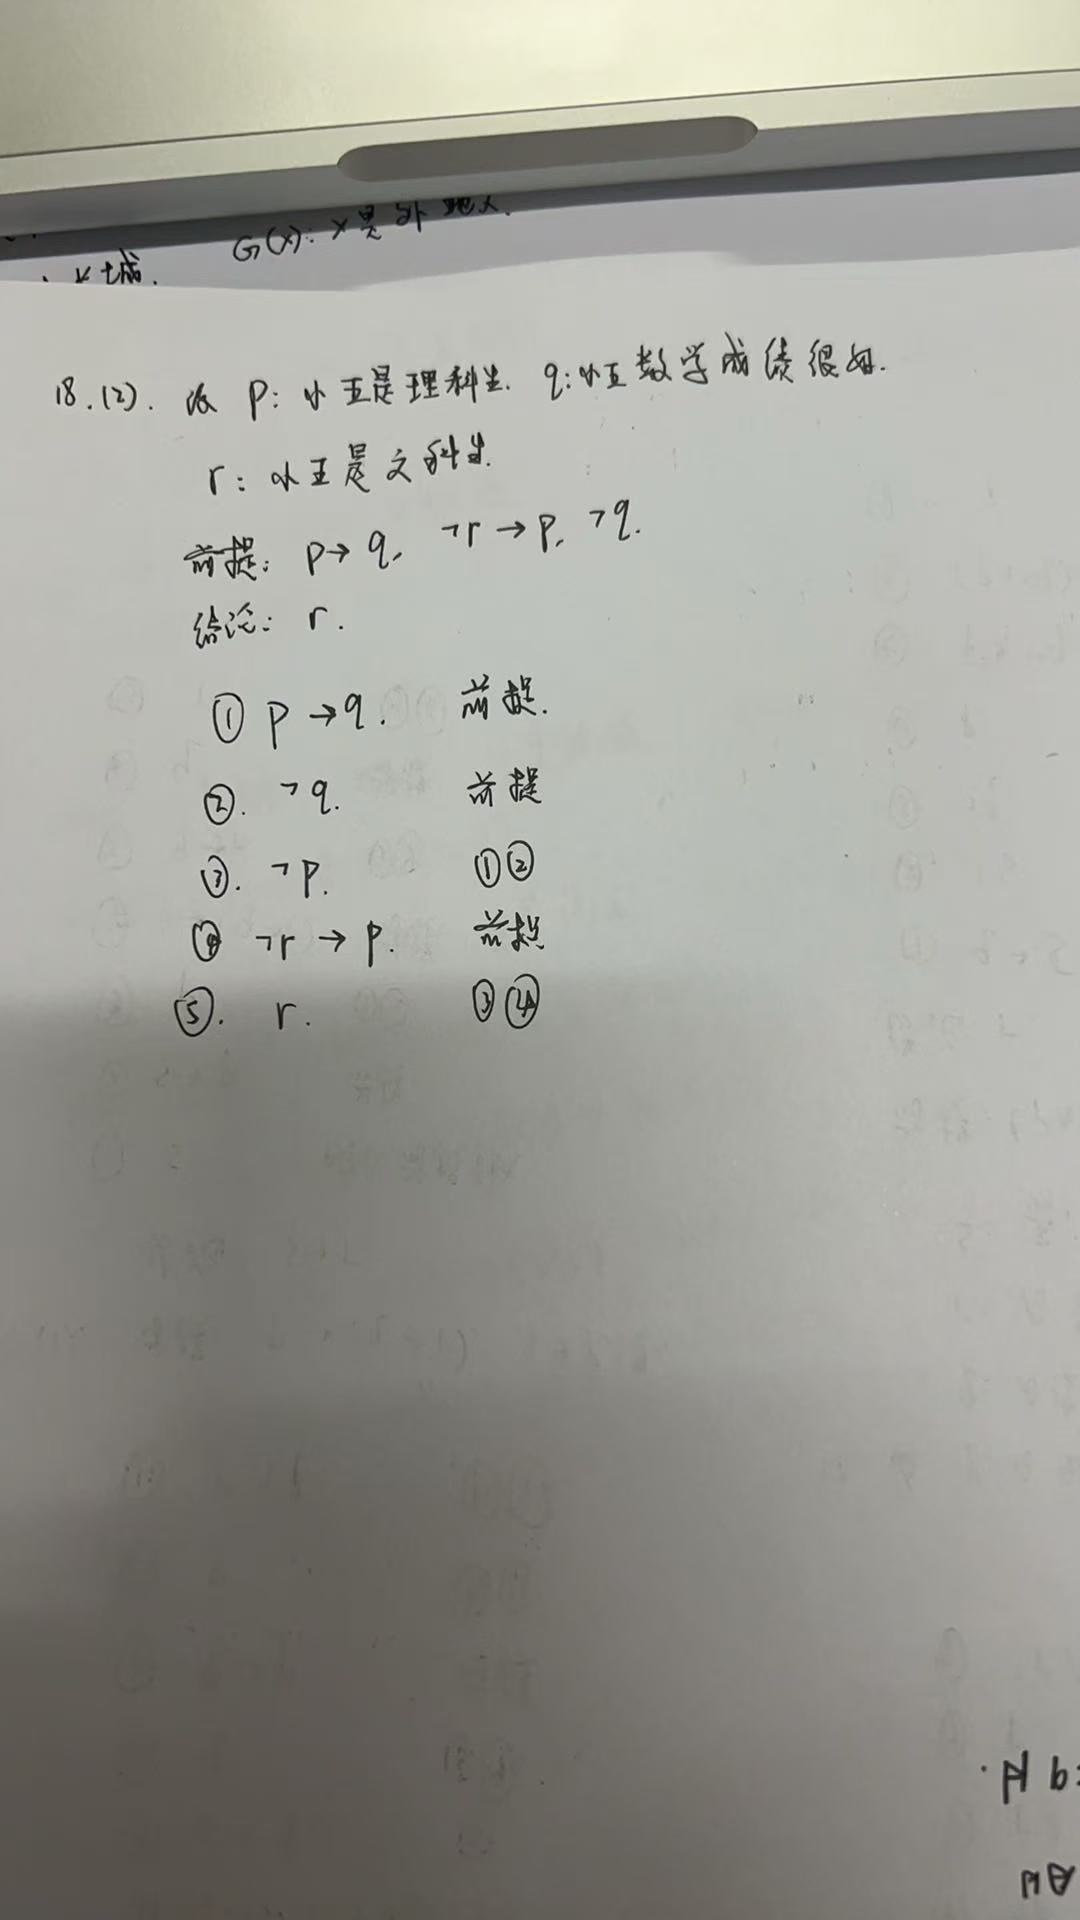 G(x): x是外地人.
18.(2). 设 p: 小王是理科生. q: 小王数学成绩很好.
r: 小王是文科生.
前提: p→q, ¬r→p, ¬q.
结论: r.
① p→q. 前提.
②. ¬q. 前提
③. ¬p. ①②
④ ¬r→p. 前提
⑤. r. ③④